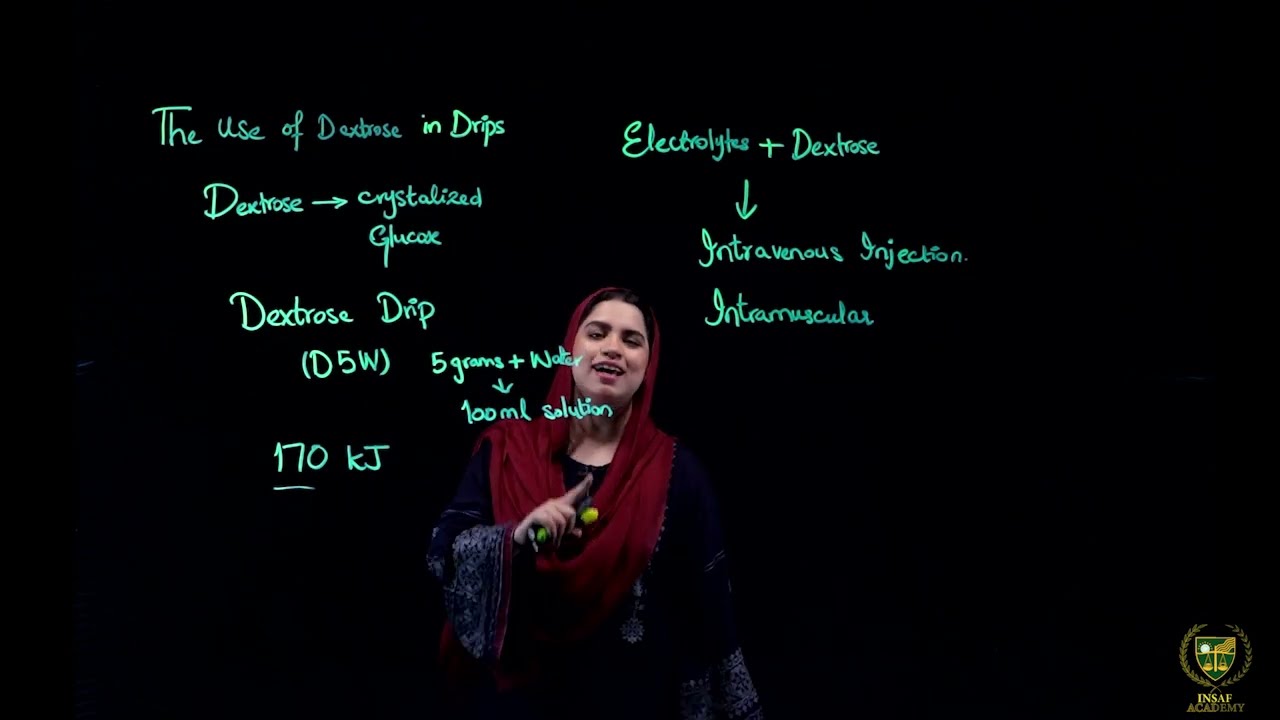 The Use of Dextrose in Drips
Dextrose → crystalized
Glucose
Dextrose Drip
(D5W) 5 grams + Water
↓
100ml solution
170 kJ
Electrolytes + Dextrose
↓
Intravenous Injection.
Intramuscular
INSAF
ACADEMY